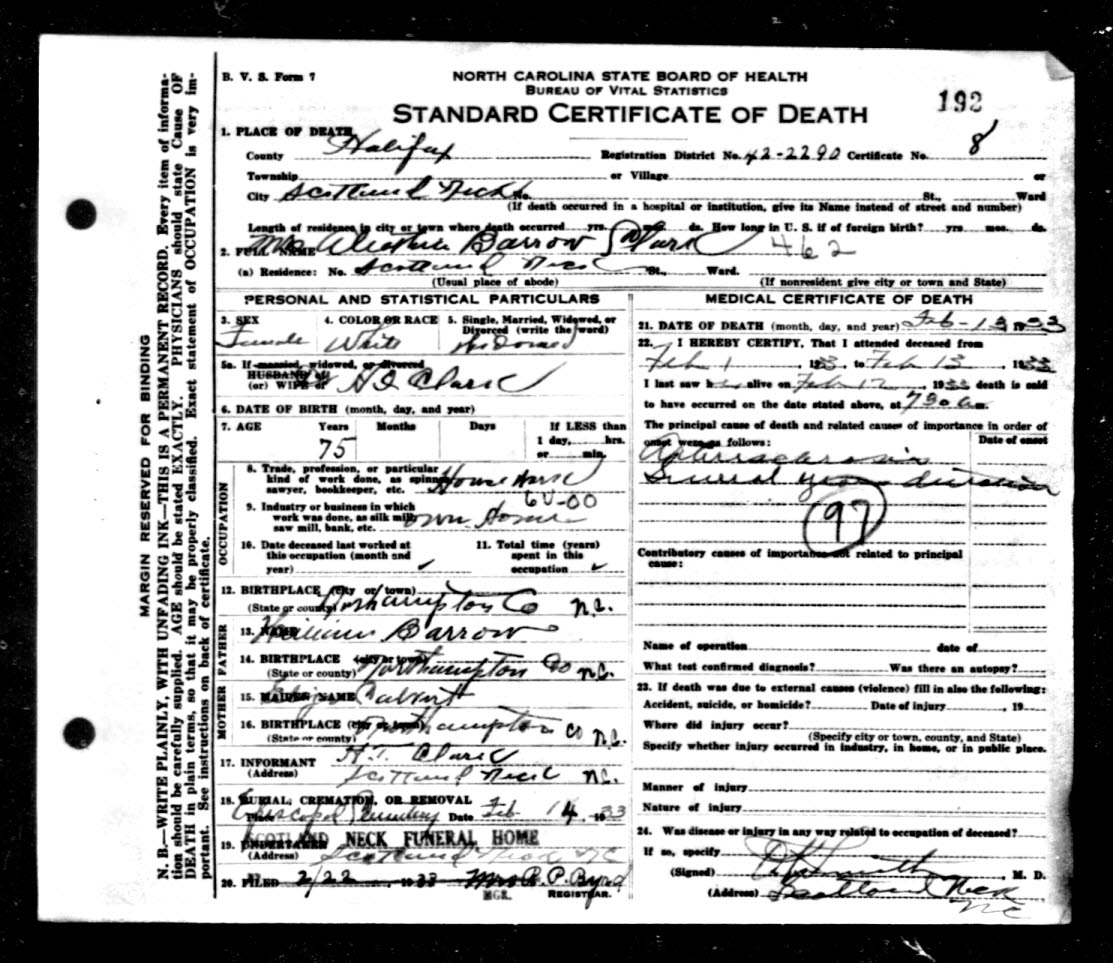 MARGIN RESERVED FOR BINDING
N. B.—WRITE PLAINLY, WITH UNFADING INK—THIS IS A PERMANENT RECORD. Every item of informa-
tion should be carefully supplied. AGE should be stated EXACTLY. PHYSICIANS should state Cause OF
DEATH in plain terms, so that it may be properly classified. Exact statement of OCCUPATION is very im-
portant. See instructions on back of certificate.
B. V. S. Form 7
NORTH CAROLINA STATE BOARD OF HEALTH
BUREAU OF VITAL STATISTICS
STANDARD CERTIFICATE OF DEATH
192
1. PLACE OF DEATH
County Halifax Registration District No. 42-2290 Certificate No. 8
Township or Village or
City Scotland Neck No. St., Ward
(If death occurred in a hospital or institution, give its Name instead of street and number)
Length of residence in city or town where death occurred yrs. mos. ds. How long in U. S. if of foreign birth? yrs. mos. ds.
2. FULL NAME Mrs Barrow Clark 462
(a) Residence: No. Scotland Neck St., Ward.
(Usual place of abode) (If nonresident give city or town and State)
PERSONAL AND STATISTICAL PARTICULARS
3. SEX 4. COLOR OR RACE 5. Single, Married, Widowed, or
Divorced (write the word)
Female White Widowed
5a. If married, widowed, or divorced
HUSBAND of
(or) WIFE of Clark
6. DATE OF BIRTH (month, day, and year)
7. AGE Years Months Days If LESS than
1 day, hrs.
or min.
75
OCCUPATION
8. Trade, profession, or particular
kind of work done, as spinner,
sawyer, bookkeeper, etc. House Work
6U-00
9. Industry or business in which
work was done, as silk mill,
saw mill, bank, etc. Own Home
10. Date deceased last worked at
this occupation (month and
year)
11. Total time (years)
spent in this
occupation
12. BIRTHPLACE (city or town)
(State or county) Northampton Co N.C.
FATHER
13. NAME William Barrow
14. BIRTHPLACE (city or town)
(State or county) Northampton Co N.C.
MOTHER
15. MAIDEN NAME Calvert
16. BIRTHPLACE (city or town)
(State or county) Northampton Co N.C.
17. INFORMANT H.T. Clark
(Address) Scotland Neck N.C.
18. BURIAL, CREMATION, OR REMOVAL
Place Episcopal Cemetery Date Feb 14, 1933
SCOTLAND NECK FUNERAL HOME
19. UNDERTAKER
(Address) Scotland Neck NC
20. FILED 2/22 1933 Mrs R. P. Byrd
REGISTRAR.
MEDICAL CERTIFICATE OF DEATH
21. DATE OF DEATH (month, day, and year) Feb-13 1933
22. I HEREBY CERTIFY, That I attended deceased from
Feb 1, 1933, to Feb 13, 1933
I last saw her alive on Feb 12, 1933 death is said
to have occurred on the date stated above, at 730 a m.
The principal cause of death and related causes of importance in order of
onset were as follows: Date of onset
Arteriosclerosis
Several years duration
97
Contributory causes of importance not related to principal
cause:
Name of operation date of
What test confirmed diagnosis? Was there an autopsy?
23. If death was due to external causes (violence) fill in also the following:
Accident, suicide, or homicide? Date of injury , 19
Where did injury occur?
(Specify city or town, county, and State)
Specify whether injury occurred in industry, in home, or in public place.
Manner of injury
Nature of injury
24. Was disease or injury in any way related to occupation of deceased?
If so, specify
(Signed) Smith M. D.
(Address) Scotland Neck
NC